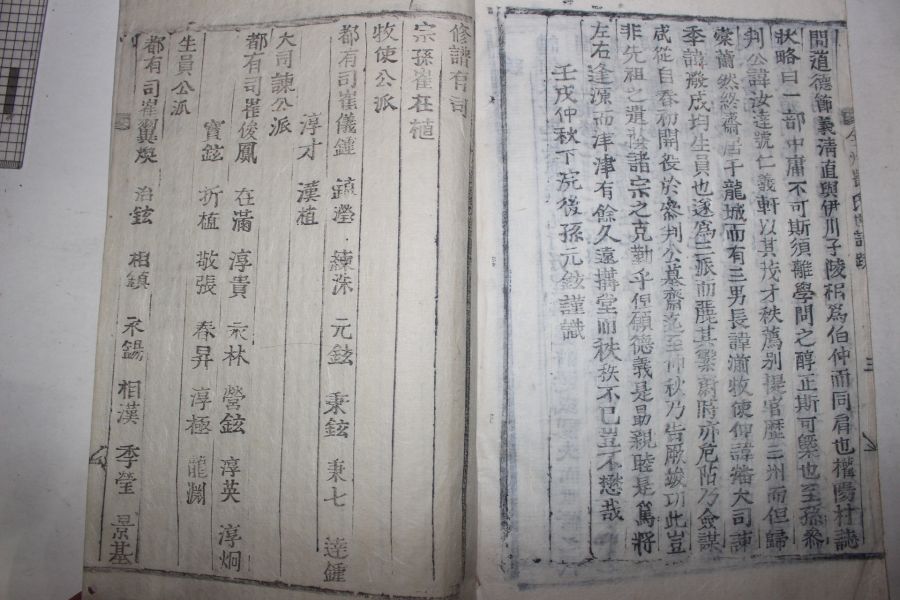 問道德節義清直與伊川子陵相爲伯仲而同看也權陽村誌
狀略曰一部中庸不可斯須離學問之醇正斯可槩也至孫叅
判公諱汝達號仁義軒以其茂才秩薦別揚官歷三州而但歸
棠蘭然終齋居于龍城而有三男長諱瀟牧使仲諱潘大司諫
季諱殷成均生員也遂爲三派而麗其
咸從自春初開役於叅判公墓齋迄至仲秋乃告厥竣功此豈
非先祖之遺蔭諸宗之克勤乎但願德義是勗親睦是篤將
左右逢源而津津有餘久遠搆堂而秩秩不已豈不懋哉
壬戌仲秋下浣後孫元鉉謹識
三
修譜有司
宗孫崔在植
牧使公派
都有司崔儀鍾 鎮瀅 練洙 元鉉 秉鉉 秉七 達鍾
淳才 漢植
大司諫公派
都有司崔俊鳳 在滿 淳貴 永林 營鉉 淳英 淳炯
寶鉉 祈植 敬張 春昇 淳極 龍淵
生員公派
都有司崔翼煥 治鉉 相鎮 永錫 相漢 季瑩 景基